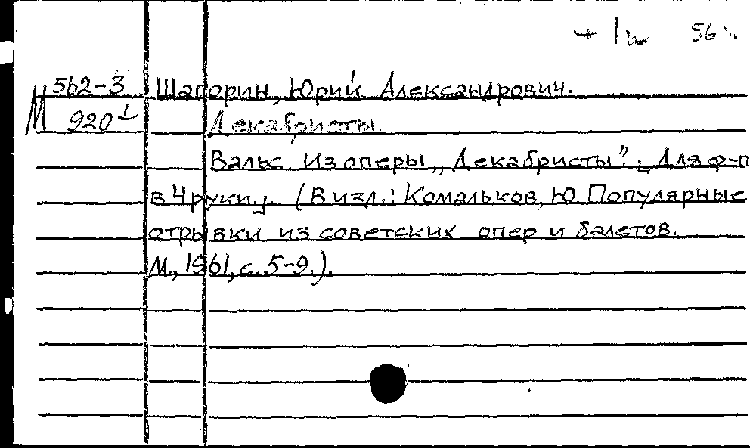 56
М 562-3 Шапорин, Юрий Александрович.
920 Декабристы.
Вальс из оперы „Декабристы”. Для ф-п
в 4 руки. (В изд.: Комальков, Ю Популярные
отрывки из советских опер и балетов.
М., 1961, с. 5-9.).